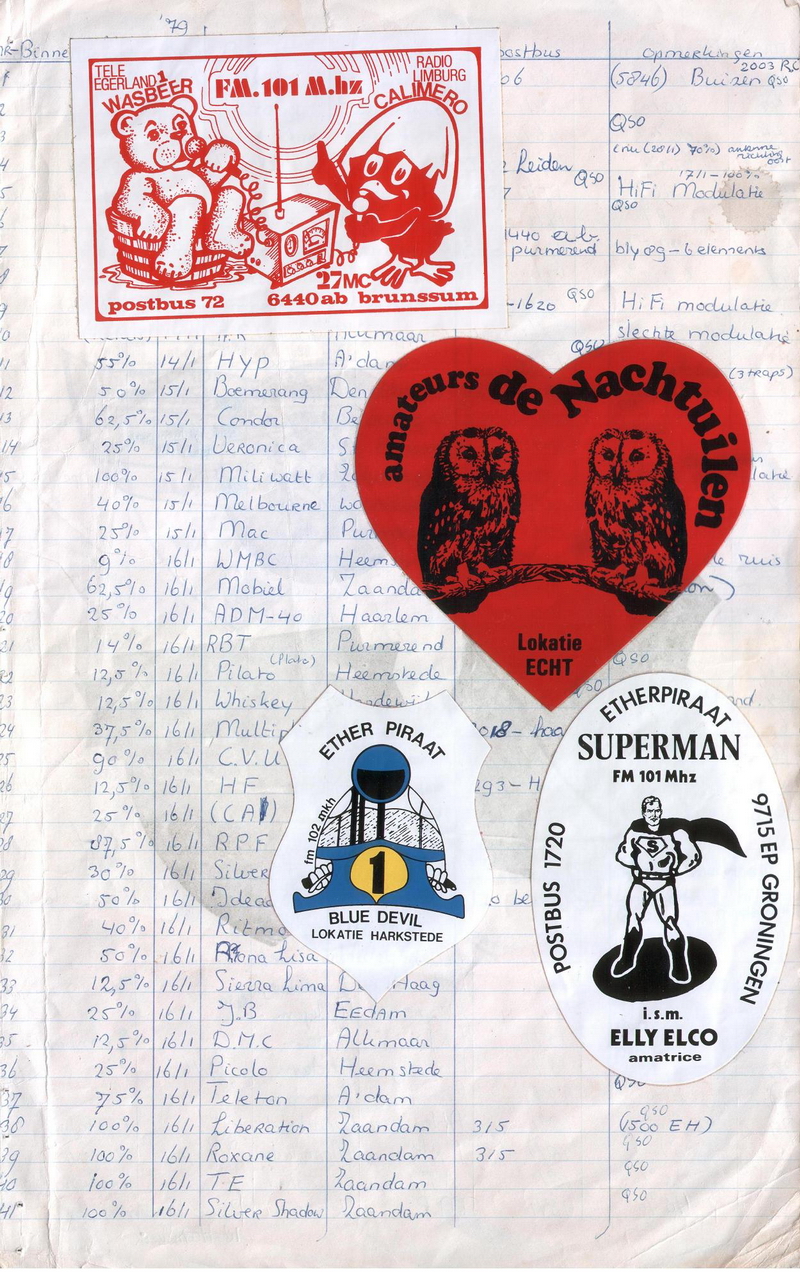 '79
postbus
opmerkingen
2003 R,C
TELE
EGERLAND 1
WASBEER
FM. 101 M.hz
RADIO
LIMBURG
CALIMERO
27MC
postbus 72 6440ab brunssum
06 (5846) Buizen QSO
QSO
Leiden QSO (nu (2011) 70%) antenne richting oost
17/1-100%
HiFi Modulatie
QSO
1440 ab
purmerend bly og-6 elements
-1620 QSO HiFi modulatie
slechte modulatie
QSO
11 55% 14/1 Hyp A'dam
(3 traps)
12 50% 15/1 Boemerang Den
13 62,5% 15/1 Condor Be
14 25% 15/1 Veronica S
15 100% 15/1 Miliwatt
16 40% 15/1 Melbourne wo
17 25% 15/1 Mac Pur
18 9% 16/1 WMBC Heem ruis
19 62,5% 16/1 Mobiel Zaanda
20 25% 16/1 ADM-40 Haarlem
21 14% 16/1 RBT Purmerend QSO
22 12,5% 16/1 Pilato (Plato) Heemstede
23 12,5% 16/1 Whiskey QSO
24 37,5% 16/1 Multip 2018-haa
25 90% 16/1 C.V.U
26 12,5% 16/1 HF 293-H
27 25% 16/1 (CA1)
28 87,5% 16/1 RPF
29 30% 16/1 Silver
30 50% 16/1 Ideaa
31 40% 16/1 Ritmo
32 50% 16/1 Mona Lisa
33 12,5% 16/1 Sierra Lima Den Haag
34 25% 16/1 J.B Eedam
35 12,5% 16/1 D.M.C Alkmaar
36 25% 16/1 Picolo Heemstede QSO
37 75% 16/1 Teleton A'dam
38 100% 16/1 Liberation Zaandam 315 QSO (1500 EH)
39 100% 16/1 Roxane Zaandam 315 QSO
40 100% 16/1 T.E Zaandam QSO
41 100% 16/1 Silver Shadow Zaandam QSO
amateurs de Nachtuilen
Lokatie
ECHT
ETHER PIRAAT
fm 102 mkh
1
BLUE DEVIL
LOKATIE HARKSTEDE
ETHERPIRAAT
SUPERMAN
FM 101 Mhz
POSTBUS 1720
9715 EP GRONINGEN
S
i.s.m.
ELLY ELCO
amatrice